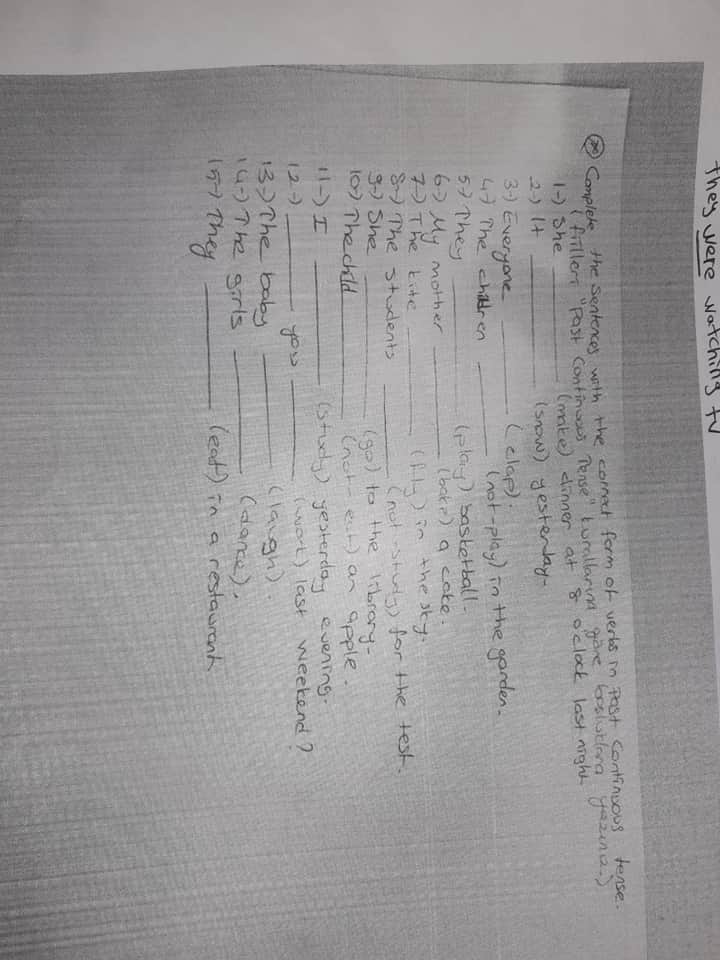 They were watching TV
* Complete the sentences with the correct form of verbs in Past Continuous tense.
(fiilleri "Past Continuous Tense" kurallarına göre boşluklara yazınız.)
1-) She ______ (make) dinner at 8 o'clock last night
2-) It ______ (snow) yesterday.
3-) Everyone ______ (clap).
4-) The children ______ (not-play) in the garden.
5-) They ______ (play) basketball.
6-) My mother ______ (bake) a cake.
7-) The kite ______ (fly) in the sky.
8-) The students ______ (not-study) for the test.
9-) She ______ (go) to the library.
10-) The child ______ (not-eat) an apple.
11-) I ______ (study) yesterday evening.
12-) ______ you ______ (work) last weekend?
13-) The baby ______ (laugh).
14-) The girls ______ (dance).
15-) They ______ (eat) in a restaurant